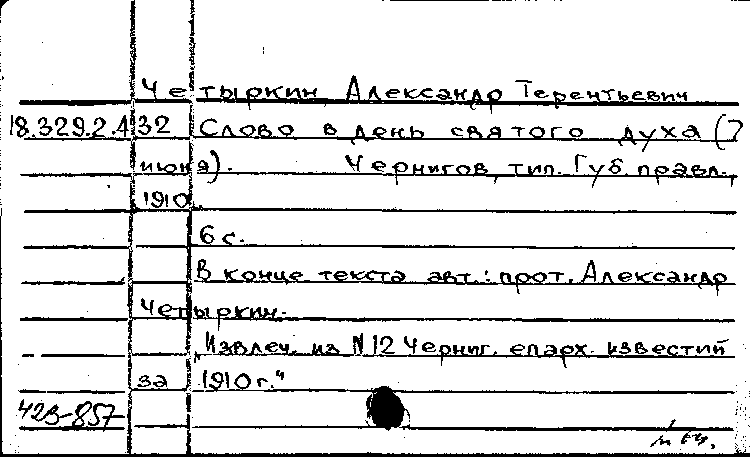 Четыркин, Александр Терентьевич
18.329.2.432 Слово в день святого духа (7
июня). Чернигов, тип. Губ. правл.,
1910.
6 с.
В конце текста авт.: прот. Александр
Четыркин.
„Извлеч. из N 12 Черниг. епарх. известий
за 1910 г."
42в-857